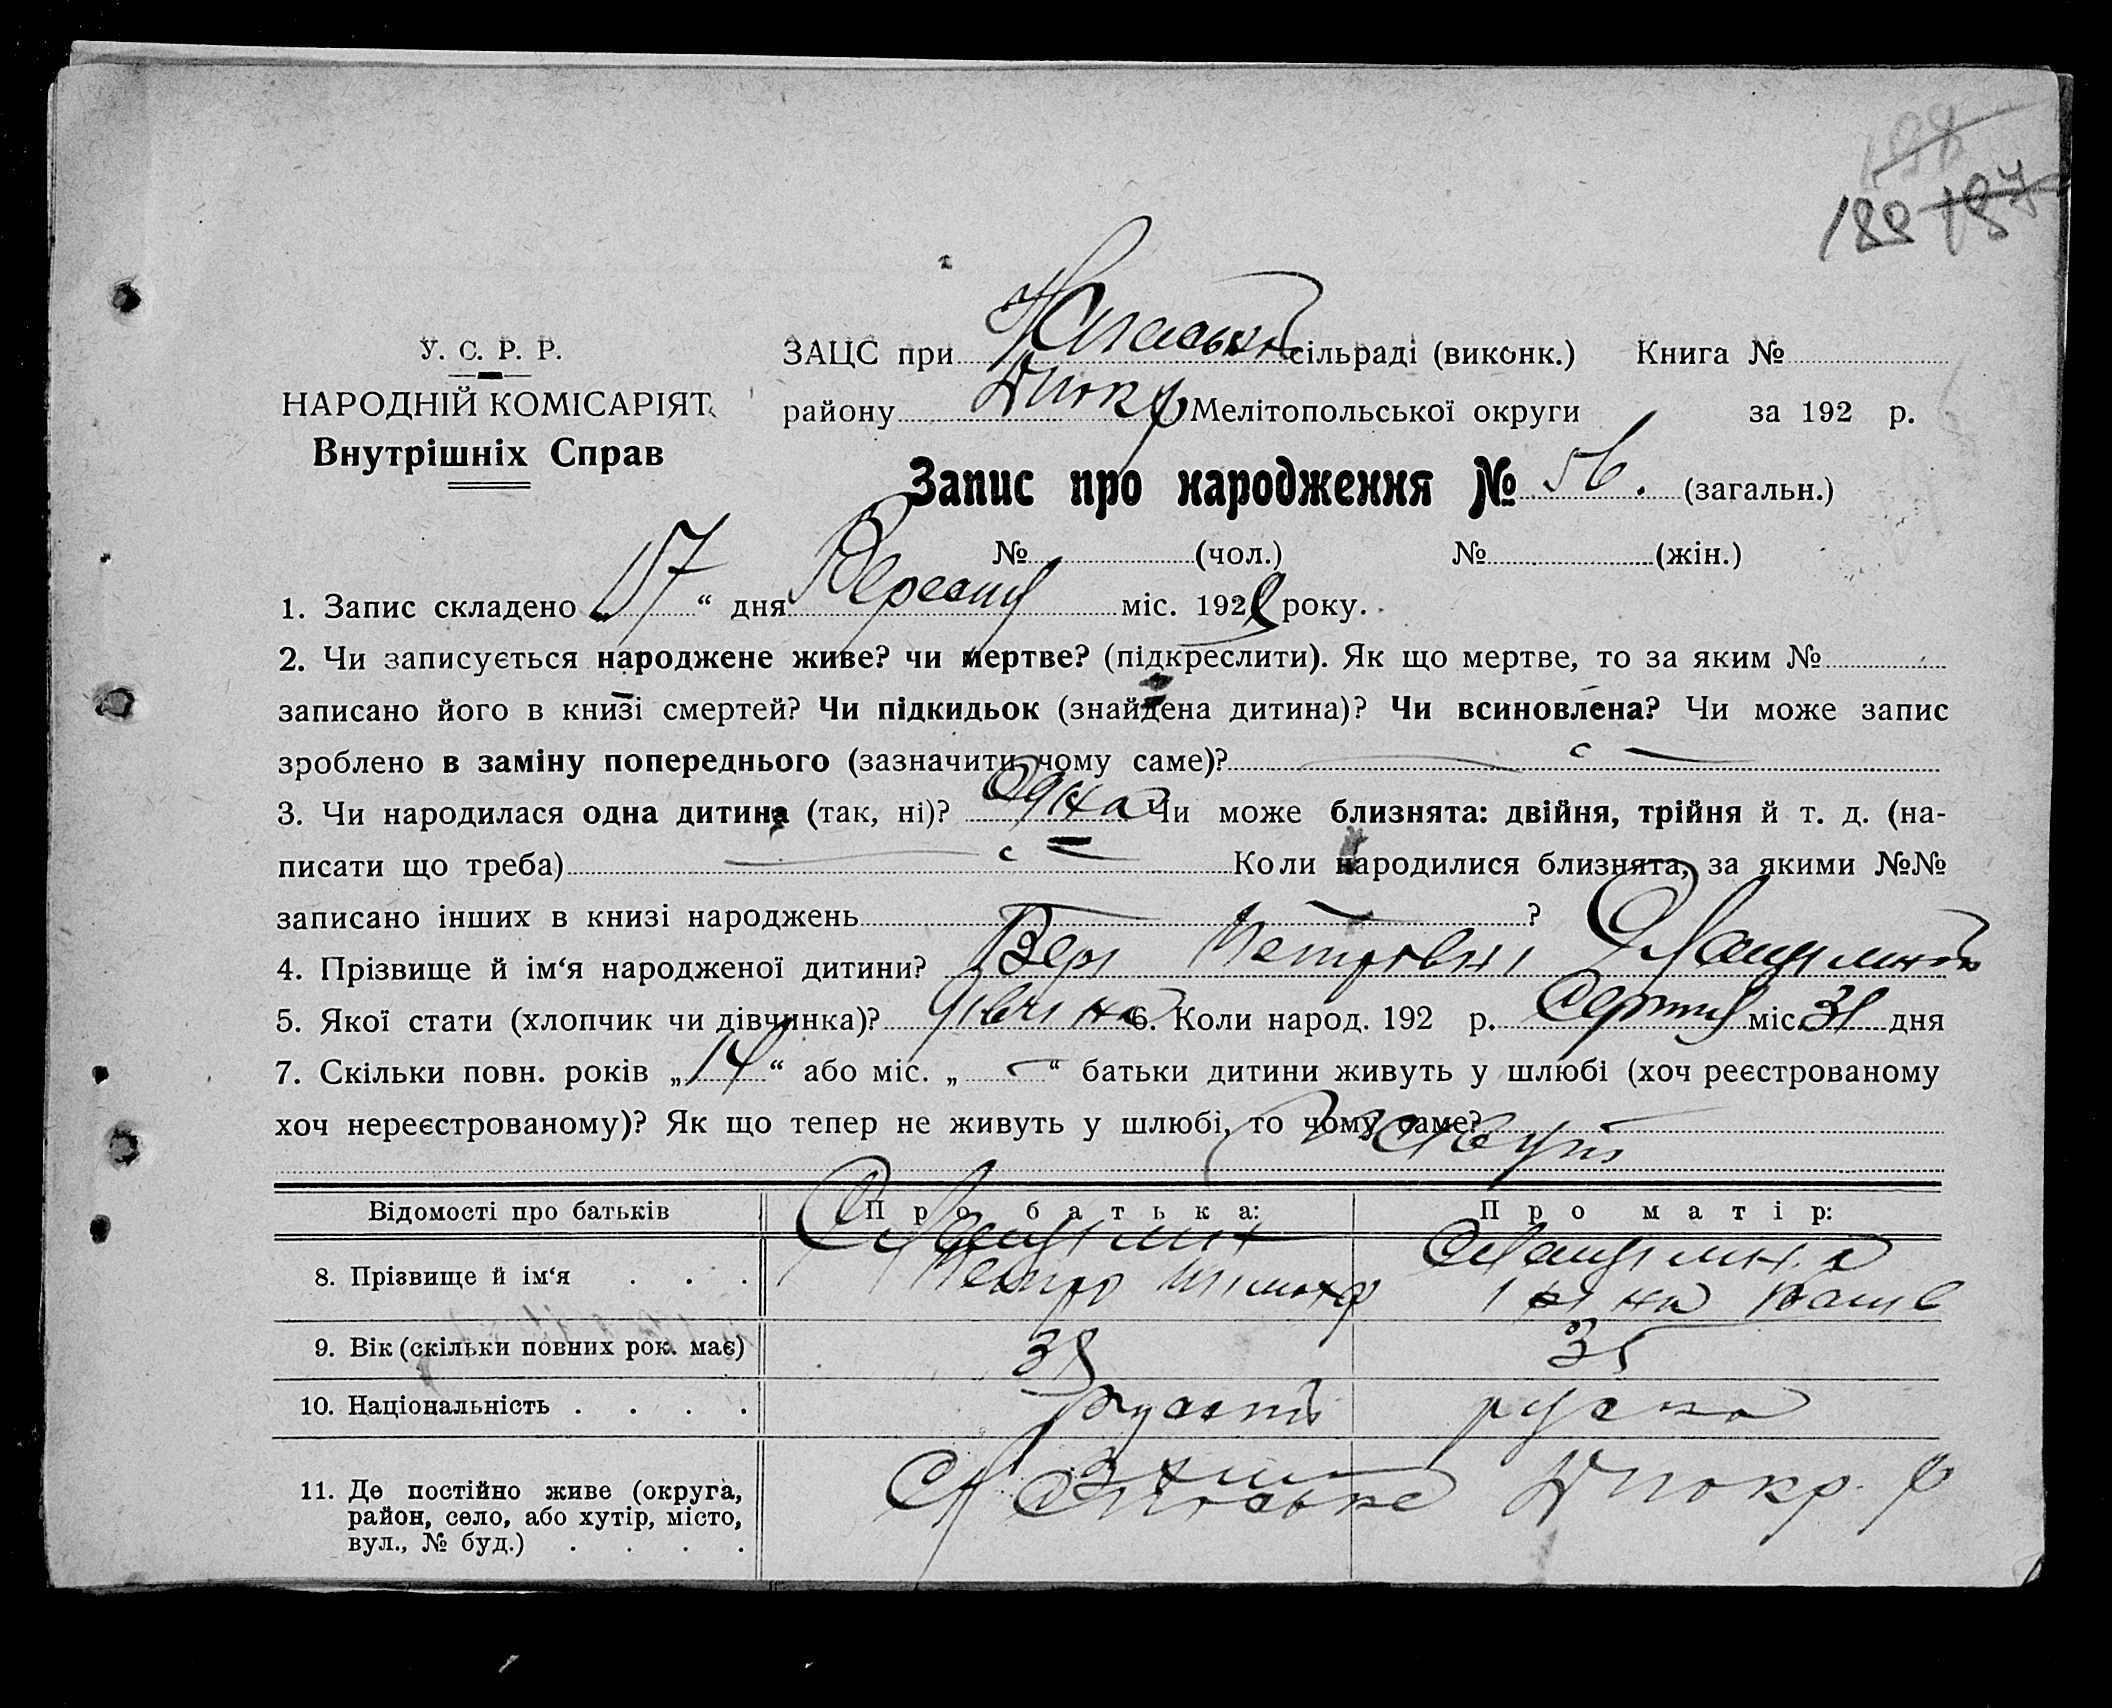 198
188 187
У. С. Р. Р.
НАРОДНІЙ КОМІСАРІЯТ
Внутрішніх Справ
ЗАЦС при сільраді (виконк.) Книга №
району Мелітопольської округи за 192 р.
Запис про народження № 56. (загальн.)
№ (чол.) № (жін.)
1. Запис складено „17“ дня Вересня міс. 1928 року.
2. Чи записується народжене живе? чи мертве? (підкреслити). Як що мертве, то за яким №
записано його в книзі смертей? Чи підкидьок (знайдена дитина)? Чи всиновлена? Чи може запис
зроблено в заміну попереднього (зазначити чому саме)?
3. Чи народилася одна дитина (так, ні)? Одна Чи може близнята: двійня, трійня й т. д. (на-
писати що треба) Коли народилися близнята, за якими №№
записано інших в книзі народжень ?
4. Прізвище й ім‘я народженої дитини? Вера Петровна
5. Якої стати (хлопчик чи дівчинка)? дівчина 6. Коли народ. 192 р. Серпня міс. 31 дня
7. Скільки повн. років „14“ або міс. „ “ батьки дитини живуть у шлюбі (хоч реєстрованому
хоч нереєстрованому)? Як що тепер не живуть у шлюбі, то чому саме?
живут
Відомості про батьків Про батька: Про матір:
8. Прізвище й ім‘я . . . Петро
9. Вік (скільки повних рок. має) 38 35
10. Національність . . . . руська
11. Де постійно живе (округа,
район, село, або хутір, місто,
вул., № буд.) . . . .